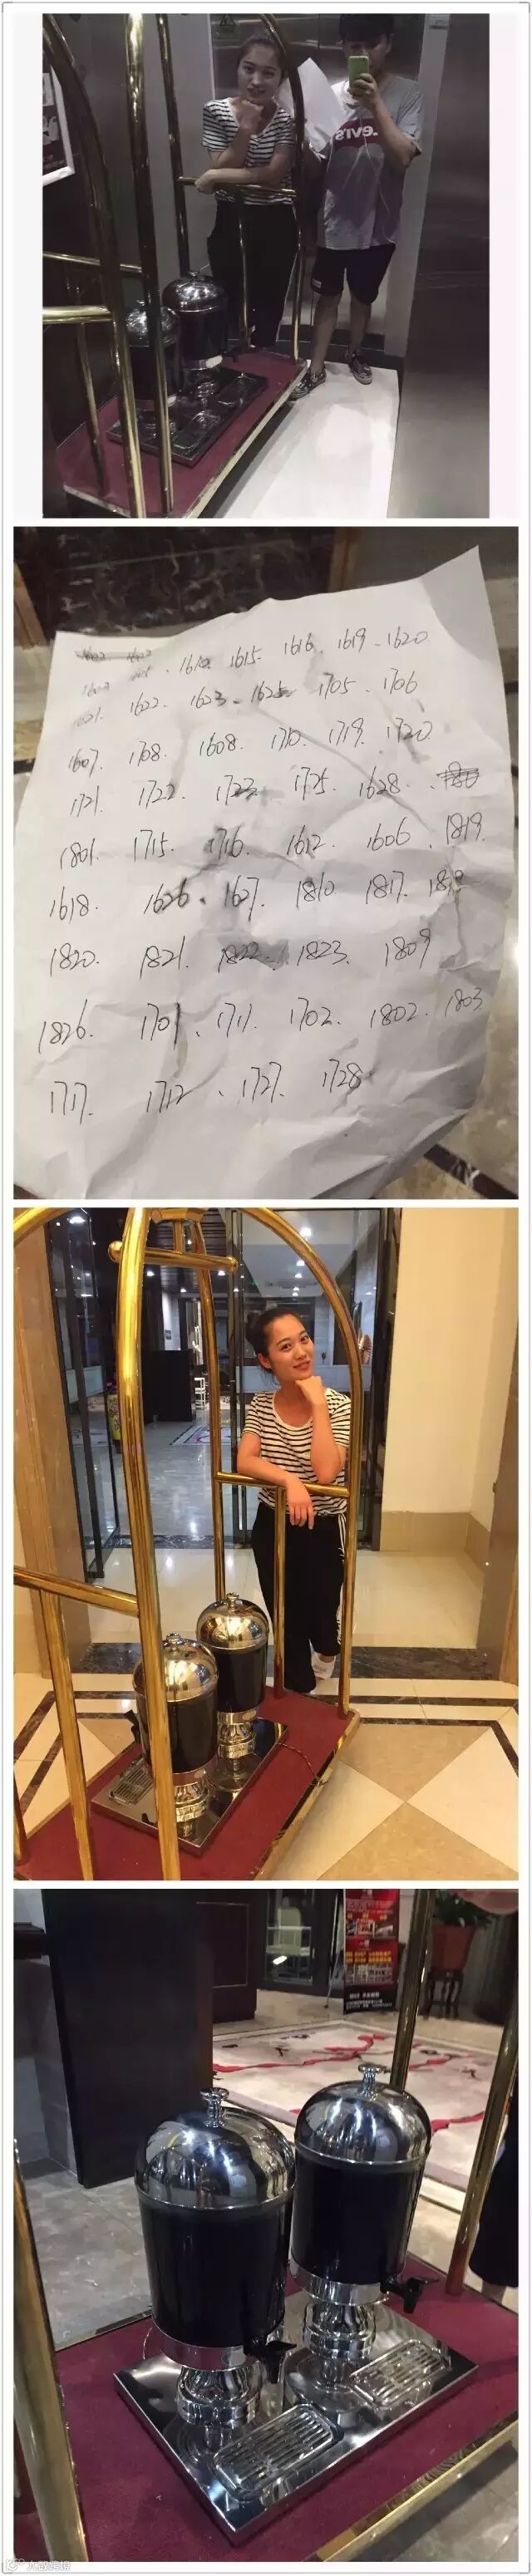 Levi's
1602 1603
1610 1615 1616 1619 - 1620
1621 1622 1623 1625 1705 1706
1607 1708 1608 1710 1719 1720
1721 1722 1723 1725 1628
1801 1715 1716 1612 1606 1819
1618 1626 1627 1810 1817
1820 1821 1822 1823 1809
1826 1701 1711 1702 1802 1803
1717 1712 1727 1728